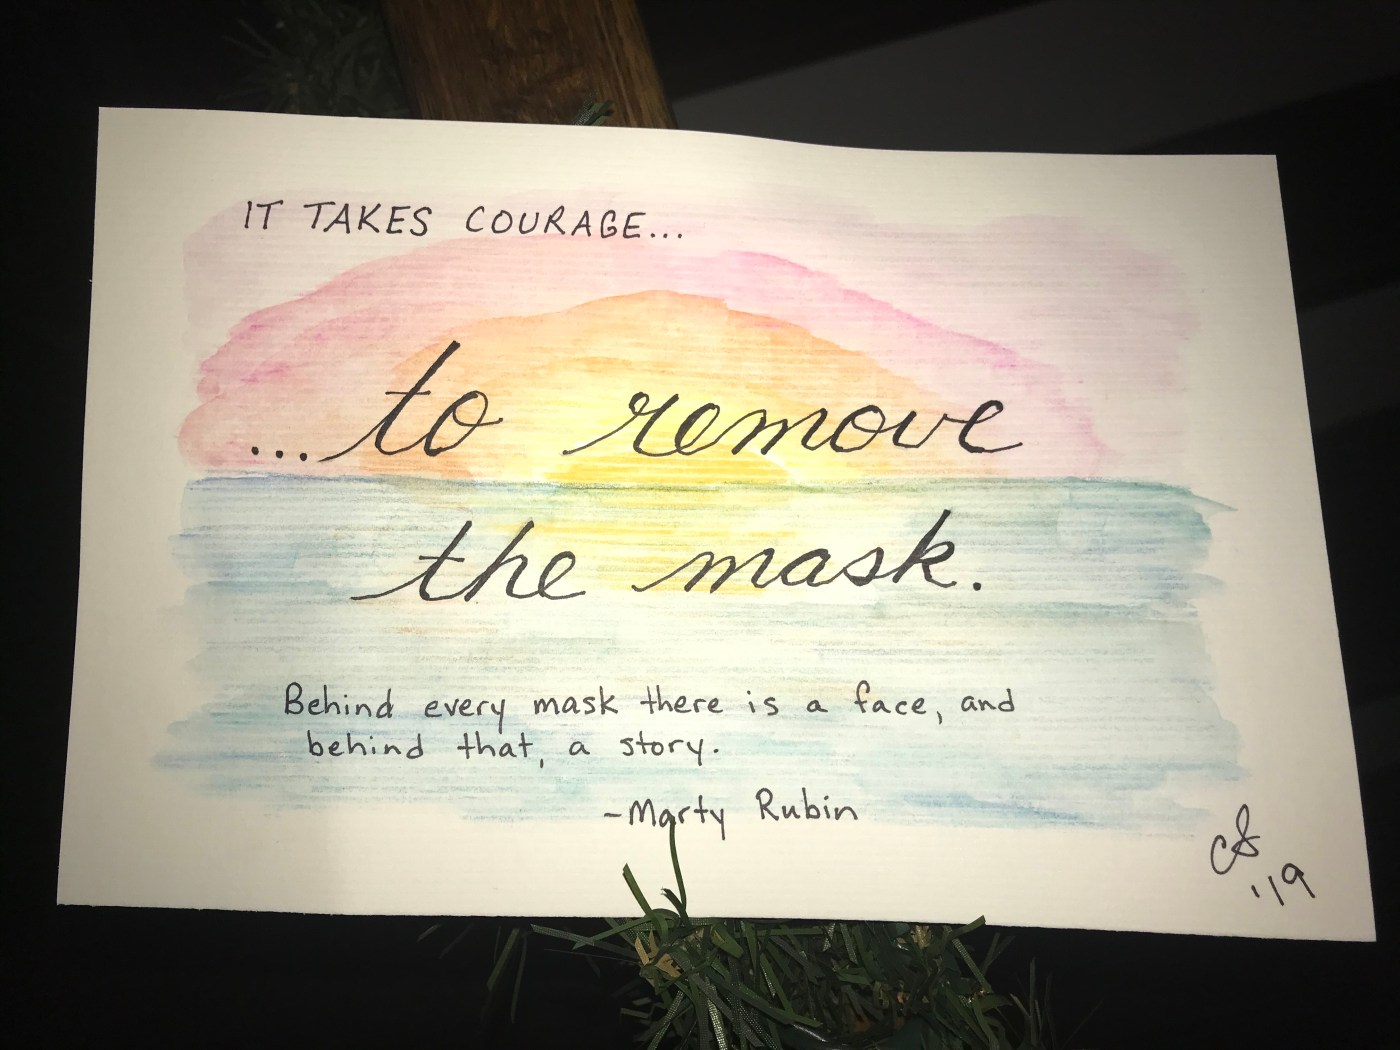 IT TAKES COURAGE...
...to remove
the mask.
Behind every mask there is a face, and
behind that, a story.
-Marty Rubin
CS
'19